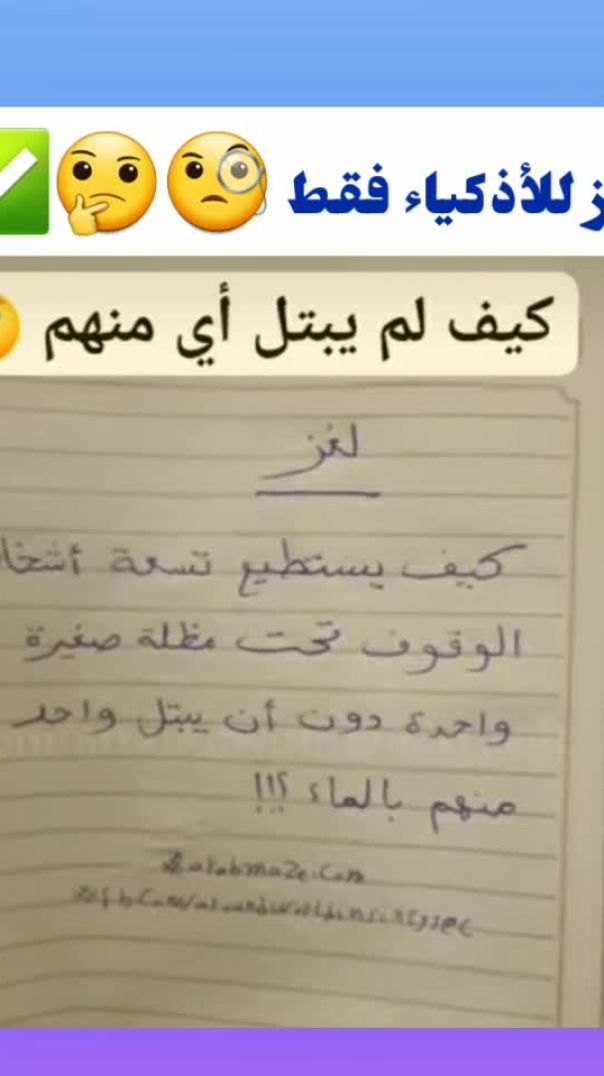 للأذكياء فقط
كيف لم يبتل أي منهم
لغز
كيف يستطيع تسعة
الوقوف تحت مظلة صغيرة
واحدة دون أن يبتل واحد
منهم بالماء ؟!!